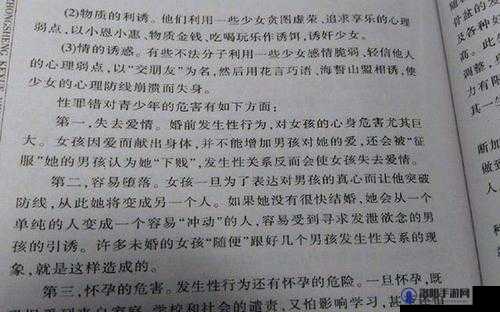 (2)物质的利诱。他们利用一些少女贪图虚荣、追求享乐的心理
弱点,以小恩小惠、物质金钱、吃喝玩乐作诱饵,诱奸少女。
(3)情的诱惑。有些不法分子利用一些少女感情脆弱,轻信他人
的心理弱点,以“交朋友”为名,然后用花言巧语、海誓山盟相诱,使
少女的心理防线崩溃而失身。
性罪错对青少年的危害有如下方面:
第一,失去爱情。婚前发生性行为,对女孩的心身危害尤其巨
大。女孩因爱而献出身体,并不能增加男孩对她的爱,还会被“征
服”她的男孩认为她“下贱”,发生性关系反而会使女孩失去爱情。
第二,容易堕落。女孩一旦为了表达对男孩的真心而让他突破
防线,从此她将变成另一个人。如果她没有很快结婚,她会从一个
单纯的人变成一个容易“冲动”的人,容易受到寻求发泄欲念的男
孩的引诱。许多未婚的女孩“随便”跟好几个男孩发生性关系的现
象,就是这样造成的。
第三,怀孕的危害。发生性行为还有怀孕的危险。一旦怀孕,既
学校和社会的谴责,又怕影响学习,甚
ZHONGSHENG KEYUE
骨盆的
及各种
好。
此
调整,
力有限
其
断加
做到